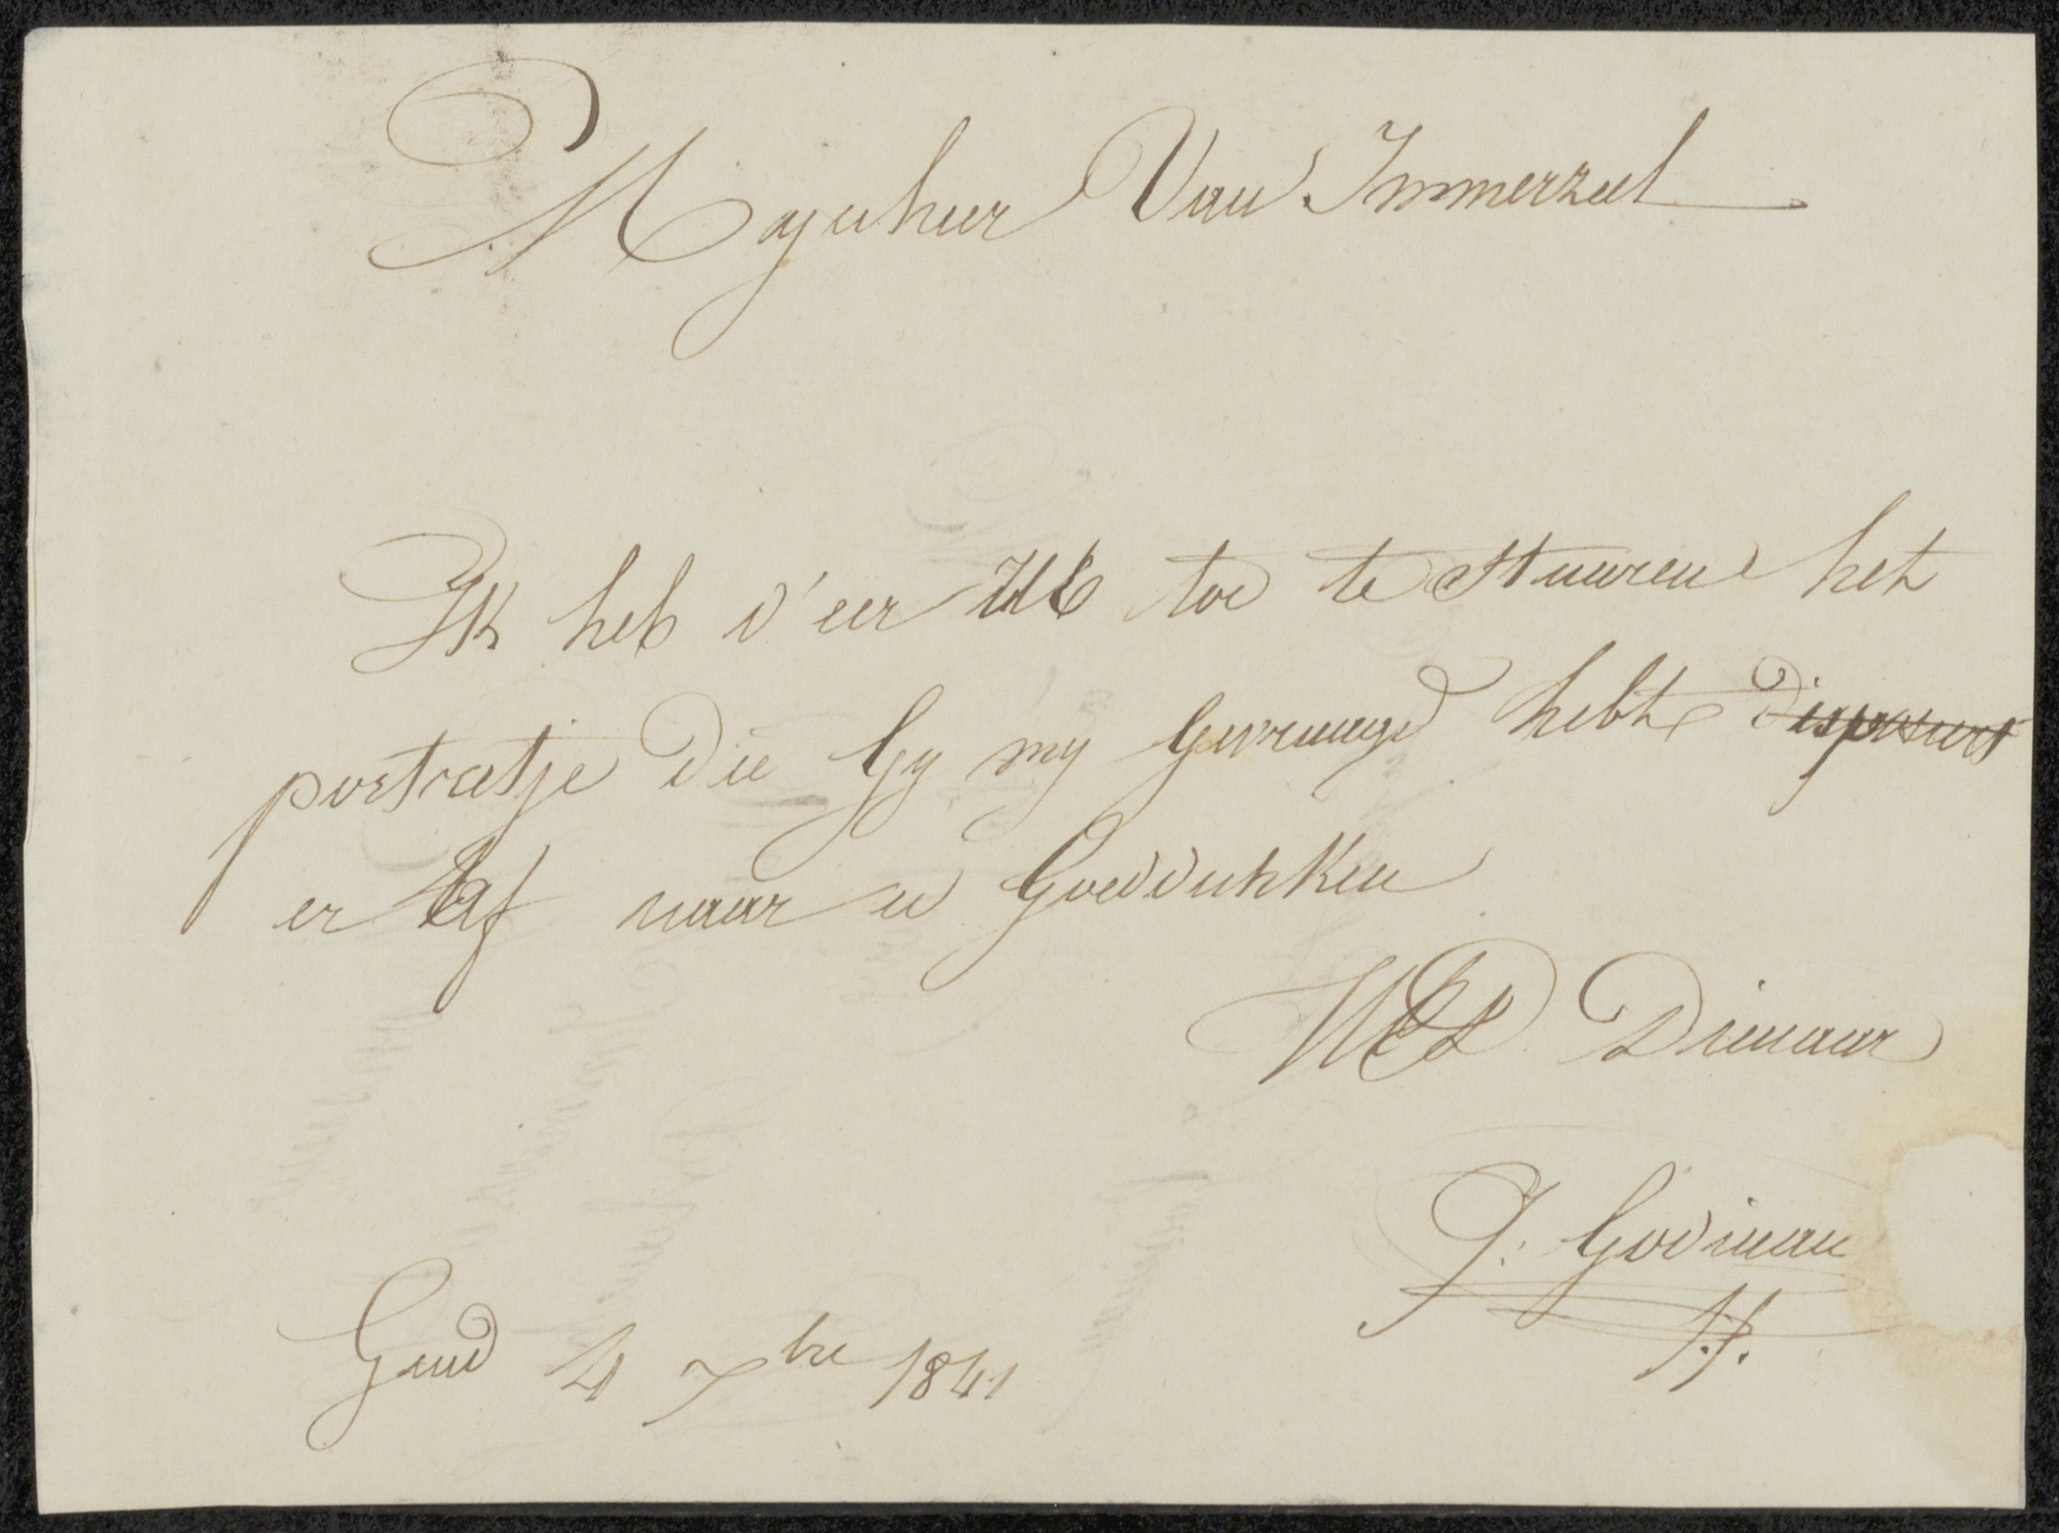 Mynheer Van Immerzeel
Ik heb d'eer UE toe te stuuren het
portretje die Gy my gevraagd hebt disposeert
er af naar u Goeddunken
UED Dienaar
J. Godinau
Gend 4 7bre 1841